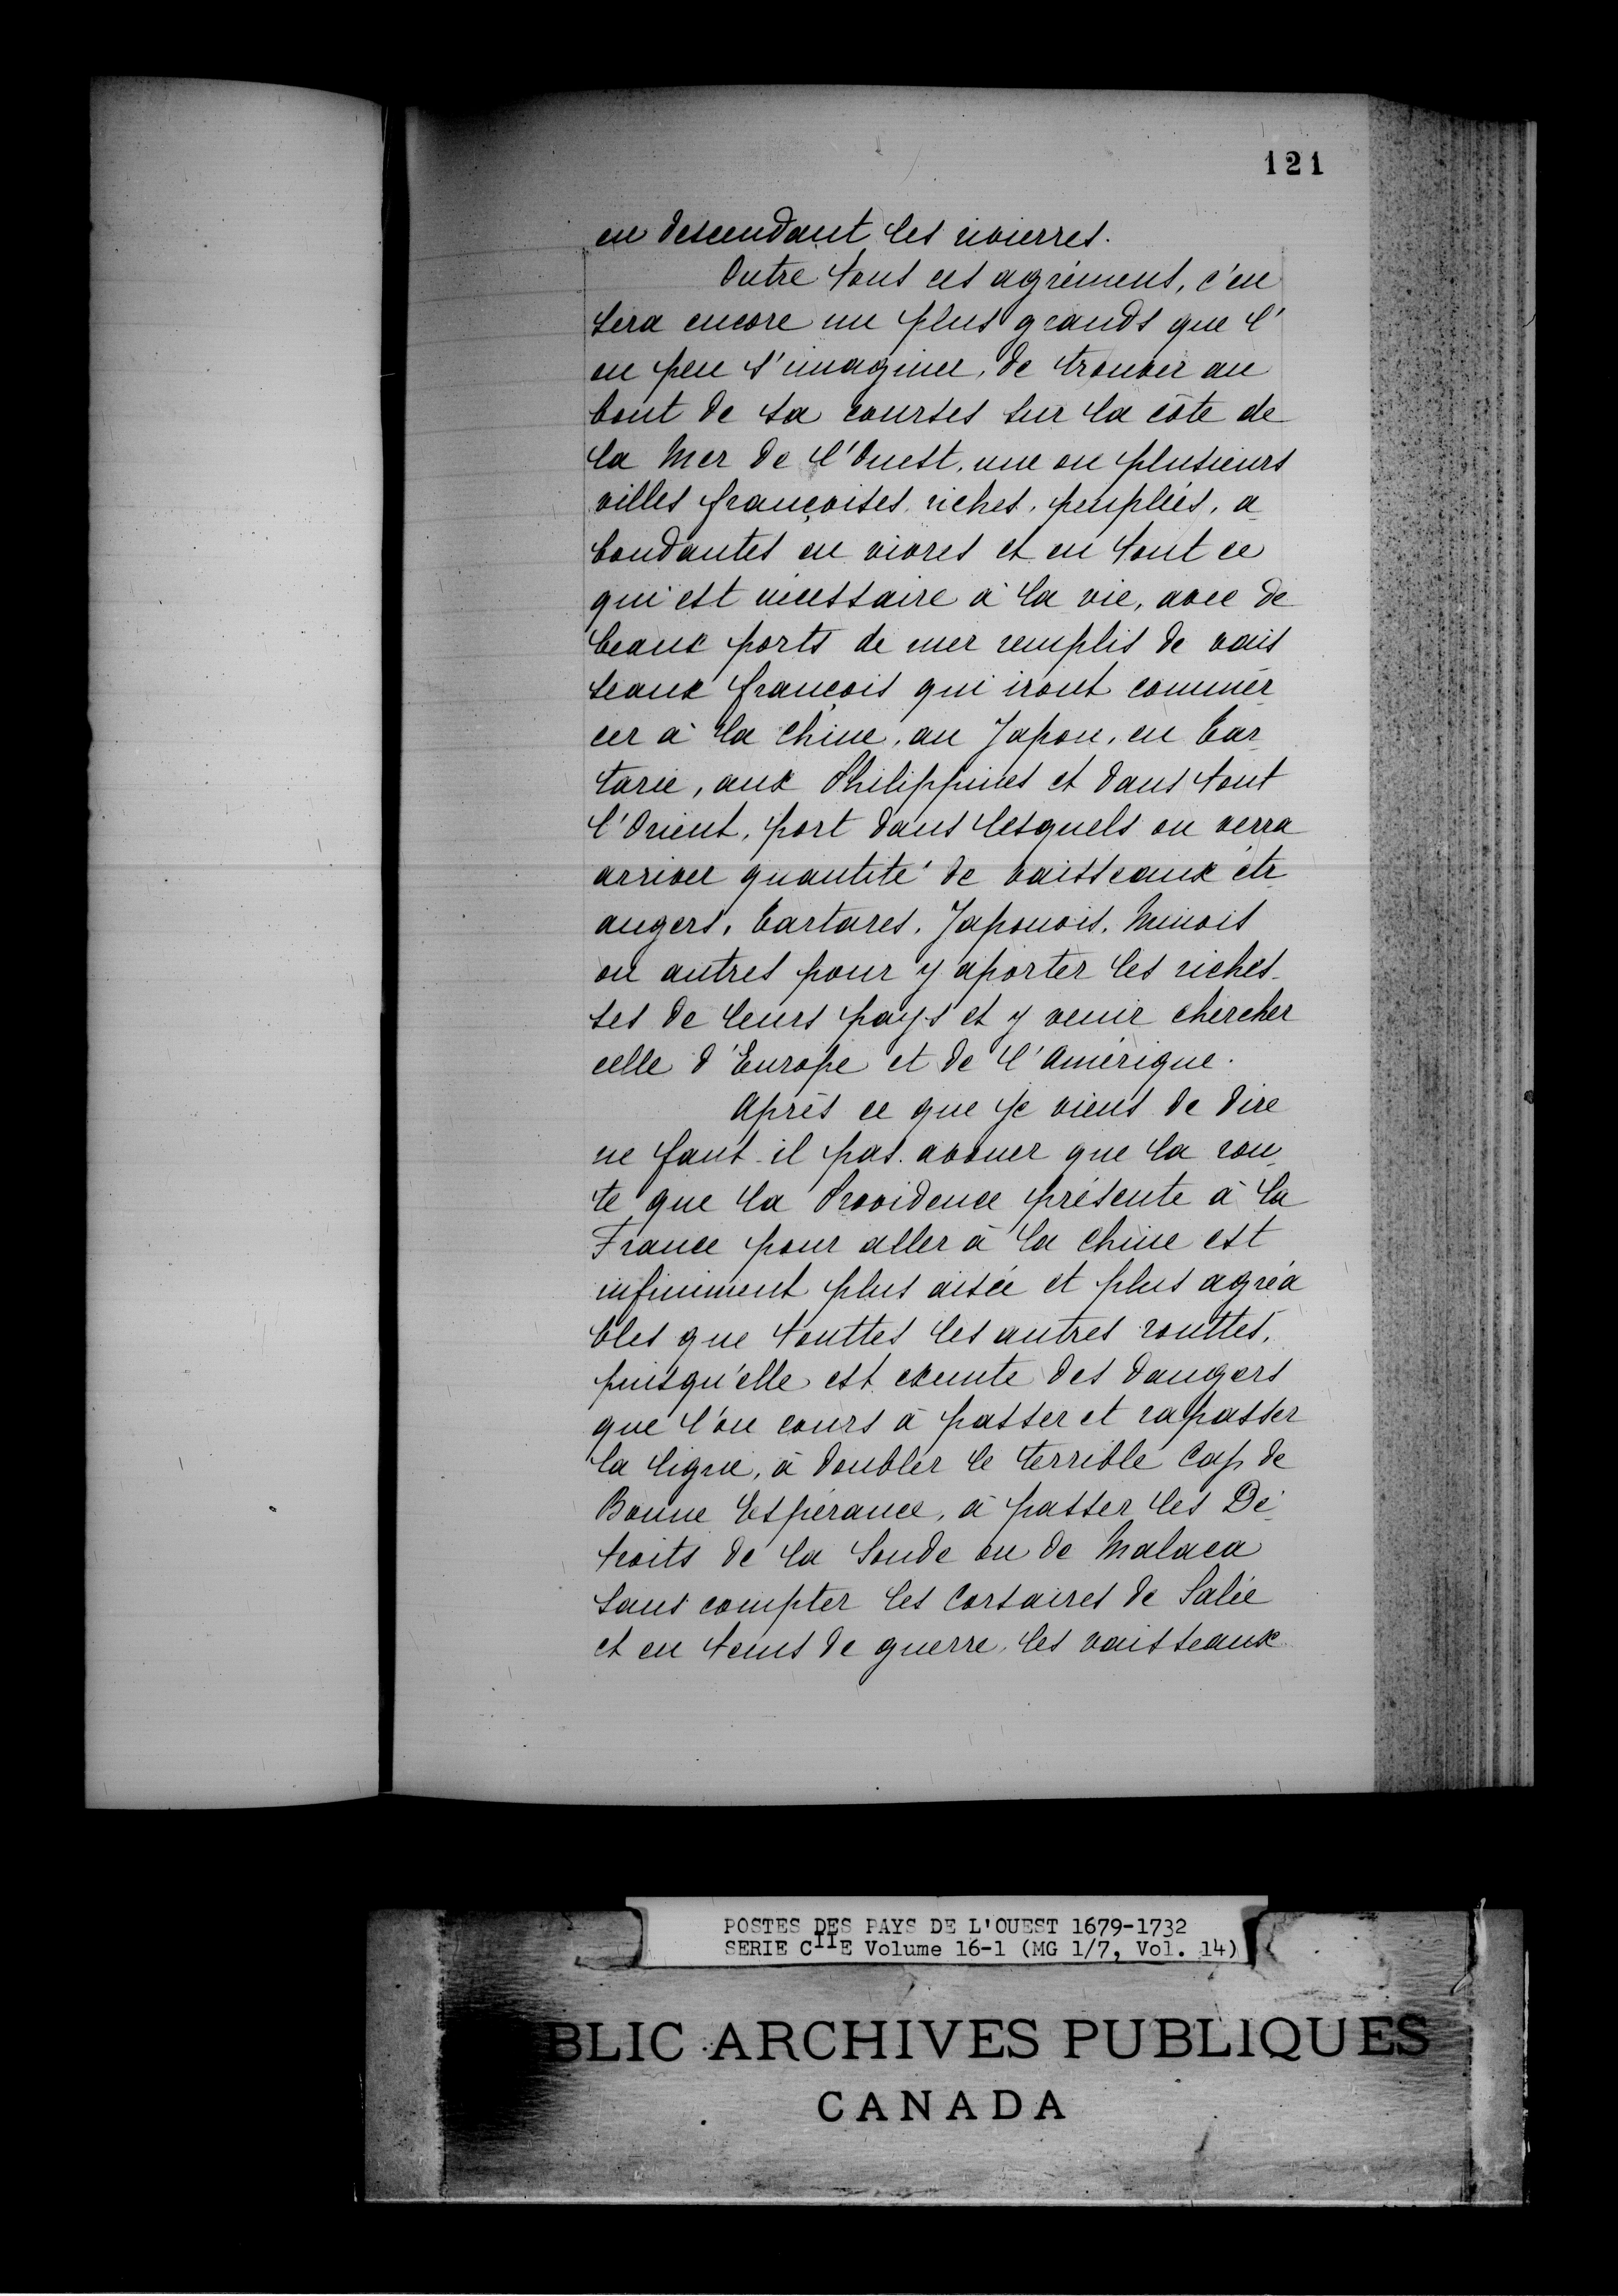 121
en descendant les rivierres.
Outre tous ces agréments, c'en
sera encore un plus grands que l'
on peu s'imaginer, de trouver au
bout de sa courses sur la côte de
la Mer de l'Ouest, une ou plusieurs
villes françoises riches, peuplées, a
bondantes en vivres et en tout ce
qui est nécessaire à la vie, avec de
beaux ports de mer remplis de vais
seaux françois qui iront commer
cer à la Chine, au Japon, en Tar
tarie, aux Philippines et dans tout
l'Orient, port dans lesquels on verra
arriver quantité de vaisseaux étr
angers, Tartares, Japonois,
ou autres pour y aporter les riches
ses de leurs pays et y venir chercher
celle d'Europe et de l'Amérique.
Après ce que je viens de dire
ne faut-il pas avouer que la rou
te que la Providence présente à la
France pour aller à la Chine est
infiniment plus aisée et plus agréa
bles que touttes les autres routtes,
puisqu'elle est exemte des dangers
que l'on cours à passer et rapasser
la ligne, à doubler le terrible Cap de
Bonne Espérance, à passer les Dé
troits de la Sonde ou de Malaca
sans compter les Corsaires de Salée
et en tems de guerre, les vaisseaux
POSTES DES PAYS DE L'OUEST 1679-1732
SERIE CIIE Volume 16-1 (MG 1/7, Vol. 14)
BLIC ARCHIVES PUBLIQUES
CANADA